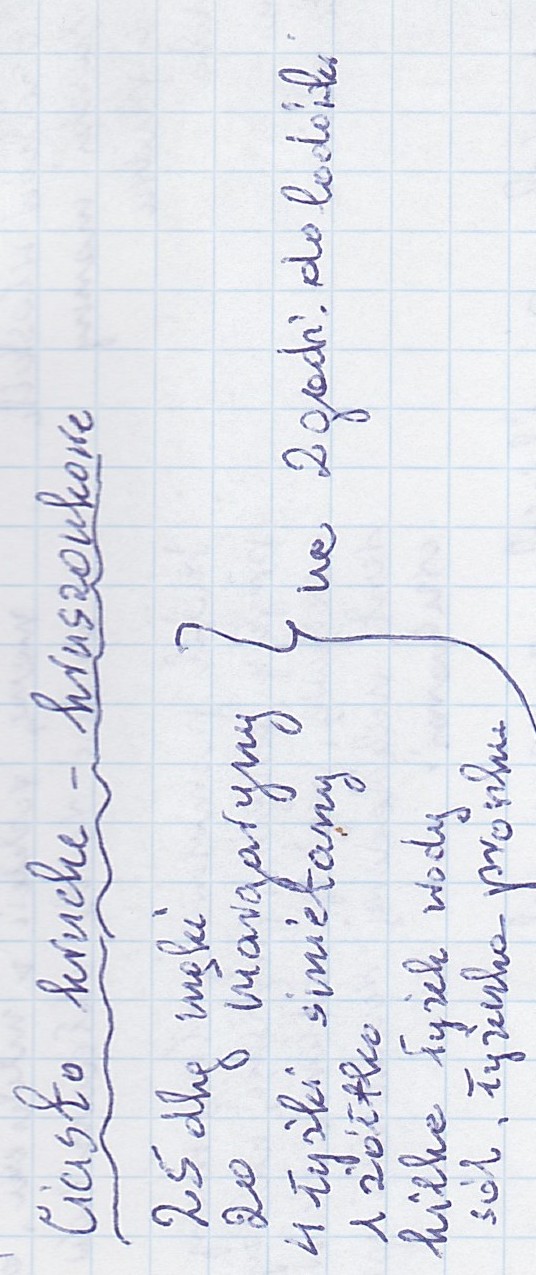 Ciasto kruche - kruszonkowe
25 dkg mąki
20 margaryny
4 łyżki śmietany
1 żółtko
kilka łyżek wody
sól, łyżeczka proszku
na 2 godz. do lodówki